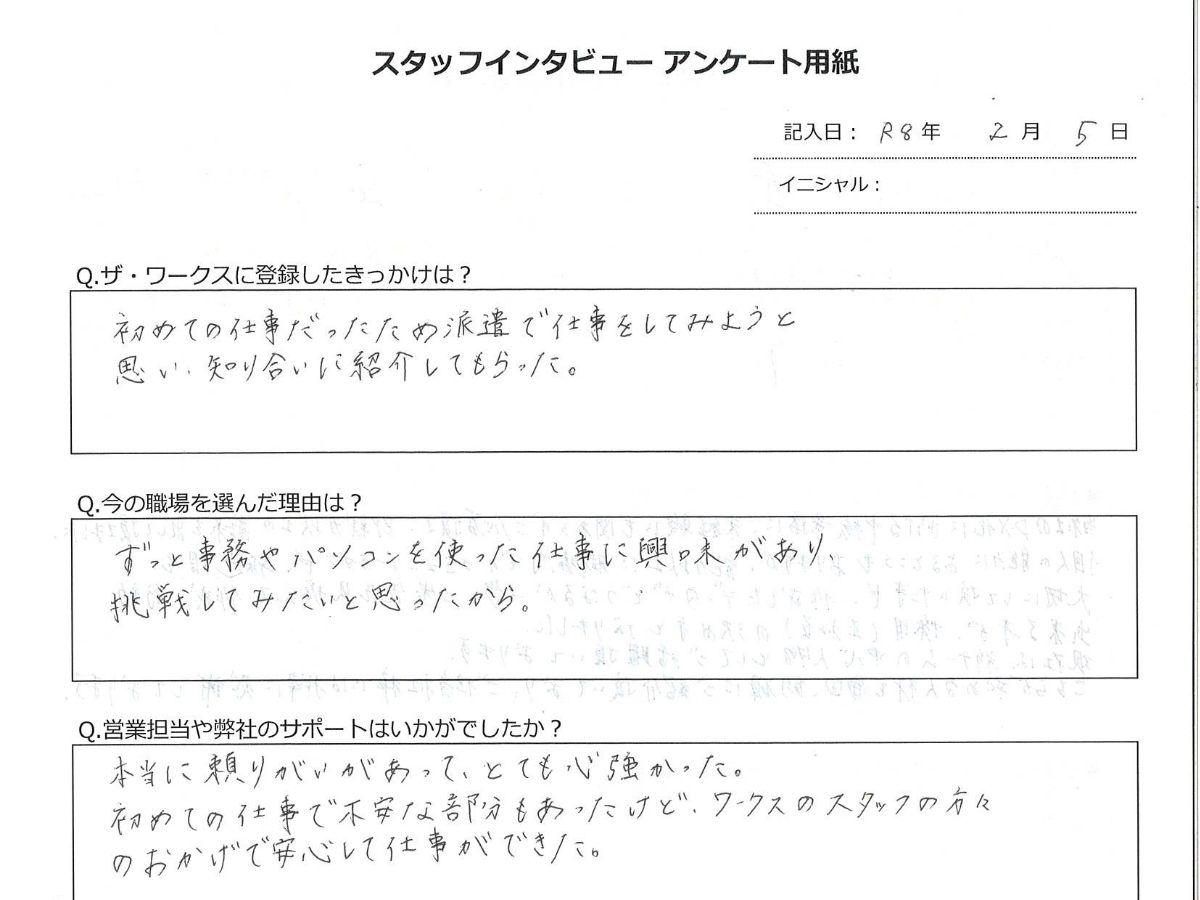 スタッフインタビュー アンケート用紙
記入日： R8年 2月 5日
イニシャル：
Q.ザ・ワークスに登録したきっかけは？
初めての仕事だったため派遣で仕事をしてみようと
思い、知り合いに紹介してもらった。
Q.今の職場を選んだ理由は？
ずっと事務やパソコンを使った仕事に興味があり、
挑戦してみたいと思ったから。
Q.営業担当や弊社のサポートはいかがでしたか？
本当に頼りがいがあって、とても心強かった。
初めての仕事で不安な部分もあったけど、ワークスのスタッフの方々
のおかげで安心して仕事ができた。